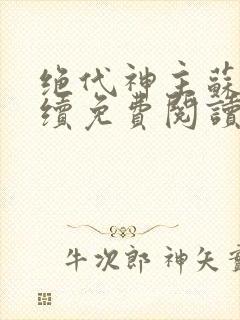 绝代神主蘇
續免費閱讀
牛次郎 神矢